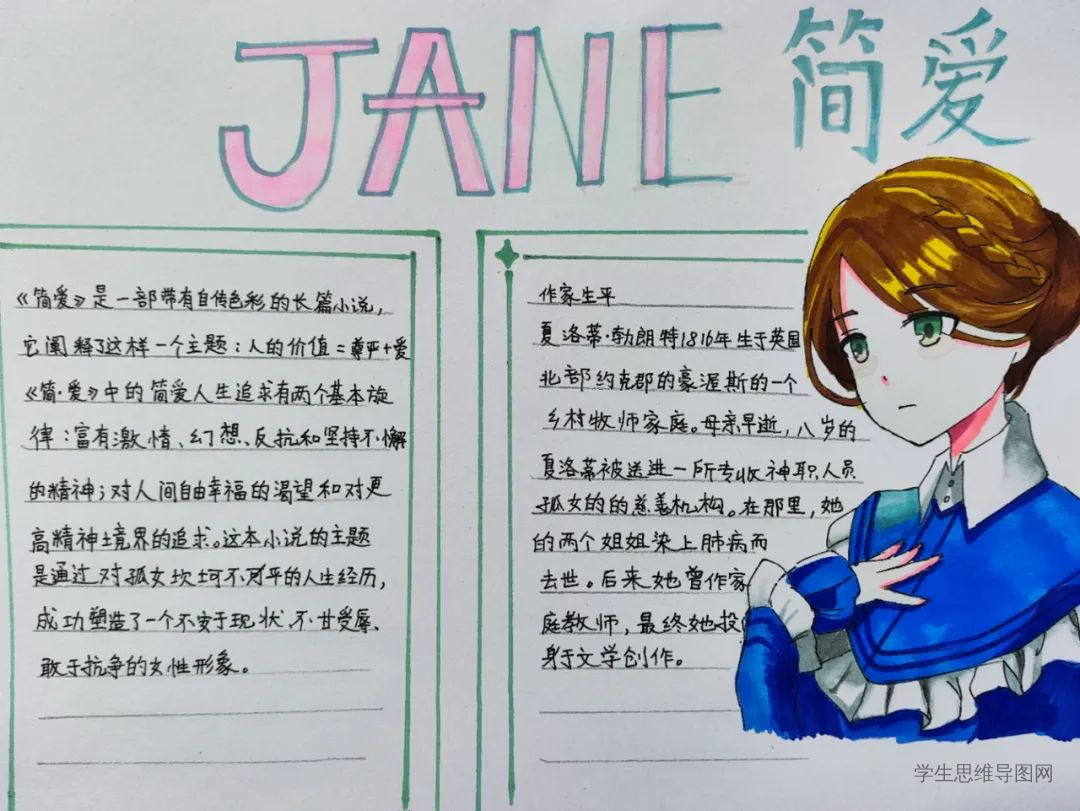 JANE 简爱
《简爱》是一部带有自传色彩的长篇小说,
它阐释了这样一个主题:人的价值=尊严+爱
《简·爱》中的简爱人生追求有两个基本旋
律:富有激情、幻想、反抗和坚持不懈
的精神;对人间自由幸福的渴望和对更
高精神境界的追求。这本小说的主题
是通过对孤女坎坷不平的人生经历,
成功塑造了一个不安于现状、不甘受辱、
敢于抗争的女性形象。
作家生平
夏洛蒂·勃朗特1816年生于英国
北部约克郡的豪渥斯的一个
乡村牧师家庭。母亲早逝,八岁的
夏洛蒂被送进一所专收神职人员
孤女的的慈善机构。在那里,她
的两个姐姐染上肺病而
去世。后来她曾作家
庭教师,最终她投
身于文学创作。
学生思维导图网